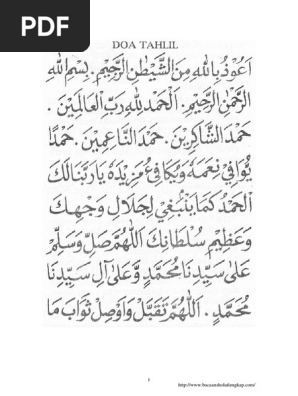 PDF
DOA TAHLIL
اَعُوْذُ بِاللهِ مِنَ الشَّيْطٰنِ الرَّجِيْمِ. بِسْمِ اللهِ
الرَّحْمٰنِ الرَّحِيْمِ. اَلْحَمْدُ لِلّٰهِ رَبِّ الْعَالَمِيْنَ.
حَمْدَ الشَّاكِرِيْنَ. حَمْدَ النَّاعِمِيْنَ. حَمْدًا
يُوَافِيْ نِعَمَهُ وَيُكَافِئُ مَزِيْدَهُ يَا رَبَّنَا لَكَ
الْحَمْدُ كَمَا يَنْبَغِيْ لِجَلَالِ وَجْهِكَ
وَعَظِيْمِ سُلْطَانِكَ اَللّٰهُمَّ صَلِّ وَسَلِّمْ
عَلٰى سَيِّدِنَا مُحَمَّدٍ وَّعَلٰى آلِ سَيِّدِنَا
مُحَمَّدٍ. اَللّٰهُمَّ تَقَبَّلْ وَاَوْصِلْ ثَوَابَ مَا
1
http://www.bacaandoalengkap.com/